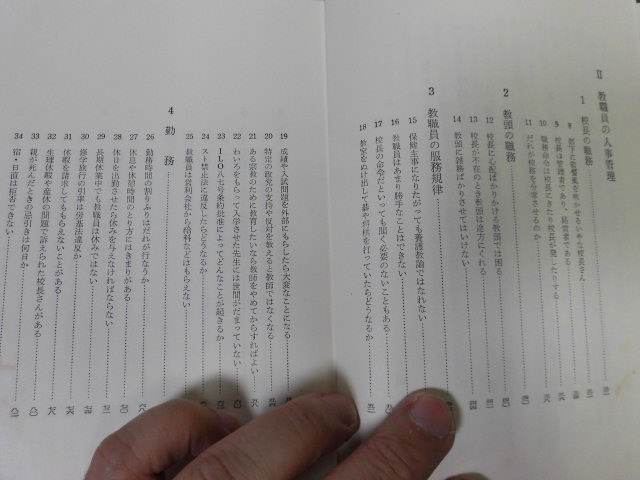 II 教職員の人事管理
1 校長の職務
8 部下に先輩風を吹かせるいやな校長さん
9 校長は管理者であり、経営者である
10 職務命令は校長にきたり校長が発したりする
11 だれが校務を分掌させるのか
2 教頭の職務
12 校長に心配ばかりかける教頭では困る
13 校長が不在のとき教頭は途方にくれる
14 教頭に雑務ばかりさせてはいけない
3 教職員の服務規律
15 保健主事になりたがっても養護教諭ではなれない
16 教職員はあまり勝手なことはできない
17 校長の命令だといっても聞く必要のないこともある
18 教室をぬけ出して碁や将棋を打っていたらどうなるか
19 成績や入試問題を外部にもらしたら大変なことになる
20 特定の政党の支持や反対を教えると教師ではなくなる
21 ある宗教のために教育したいなら教師をやめてからすればよい
22 わいろをもらって入学させた先生には世間がだまっていない
23 ILO八七号条約批准によってどんなことが起きるか
24 スト禁止法に違反したらどうなるか
25 教職員は営利会社から給料などはもらえない
4 勤務
26 勤務時間の割りふりはだれが行なうか
27 休息や休憩時間のとり方にはきまりがある
28 休日を出勤させたら休みを与えなければならない
29 長期休業中でも教職員は休みではない
30 修学旅行の引率は労基法違反か
31 休暇を請求してももらえないことがある
32 生理休暇や産休の問題で訴えられた校長さんがある
33 親が死んだときの忌引きは何日か
34 宿・日直は拒否できない